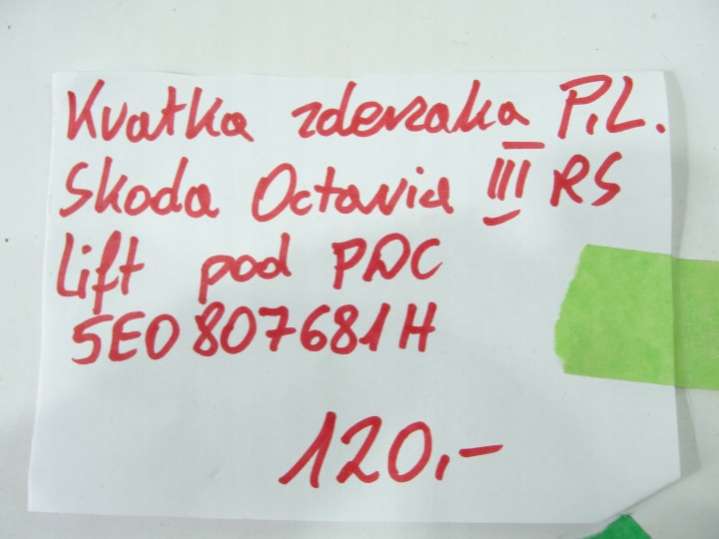 Kratka zderzaka P.L.
Skoda Octavia III RS
Lift pod PDC
5E0807681H
120,-